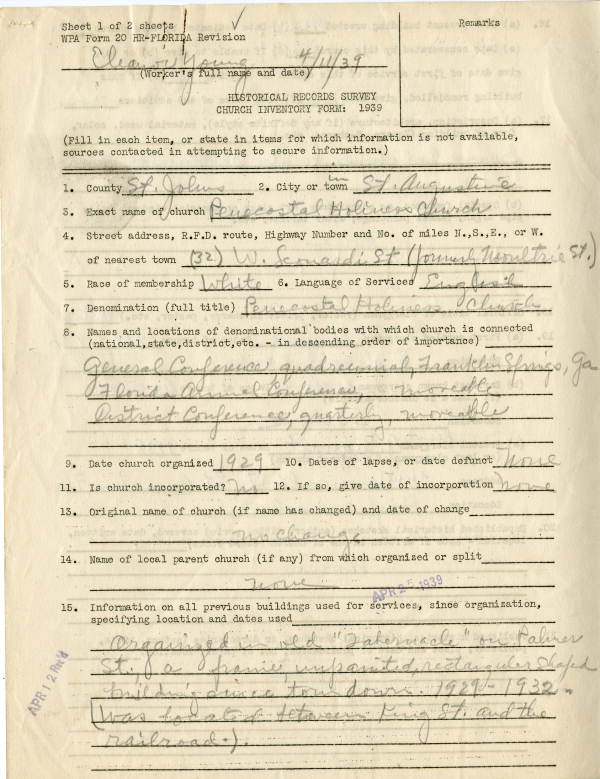 Sheet 1 of 2 sheets
Remarks
WPA Form 20 HR-FLORIDA Revision
Eleanor Young 4/11/39
(Worker's full name and date)
HISTORICAL RECORDS SURVEY
CHURCH INVENTORY FORM: 1939
(Fill in each item, or state in items for which information is not available,
sources contacted in attempting to secure information.)
1. County St. Johns 2. City or town in St. Augustine
3. Exact name of church Penecostal Holiness Church
4. Street address, R.F.D. route, Highway Number and No. of miles N.,S.,E., or W.
of nearest town (32) W. St (formerly Moultrie St.)
5. Race of membership White 6. Language of Services English
7. Denomination (full title) Penecostal Holiness Church
8. Names and locations of denominational bodies with which church is connected
(national,state,district,etc. - in descending order of importance)
General Conference, quadrennial, Franklin Springs, Ga
Florida Annual Conference, moveable
District Conference, quarterly, moveable
9. Date church organized 1929 10. Dates of lapse, or date defunct None
11. Is church incorporated? No 12. If so, give date of incorporation None
13. Original name of church (if name has changed) and date of change
no change
14. Name of local parent church (if any) from which organized or split
none
APR 25 1939
15. Information on all previous buildings used for services, since organization,
specifying location and dates used
Organized in old "Tabernacle" on Palmer
St., a frame, unpainted, rectangular shaped
building since torn down. 1929-1932.
(Was located between King St. and the
railroad.).
APR 12 Rec'd